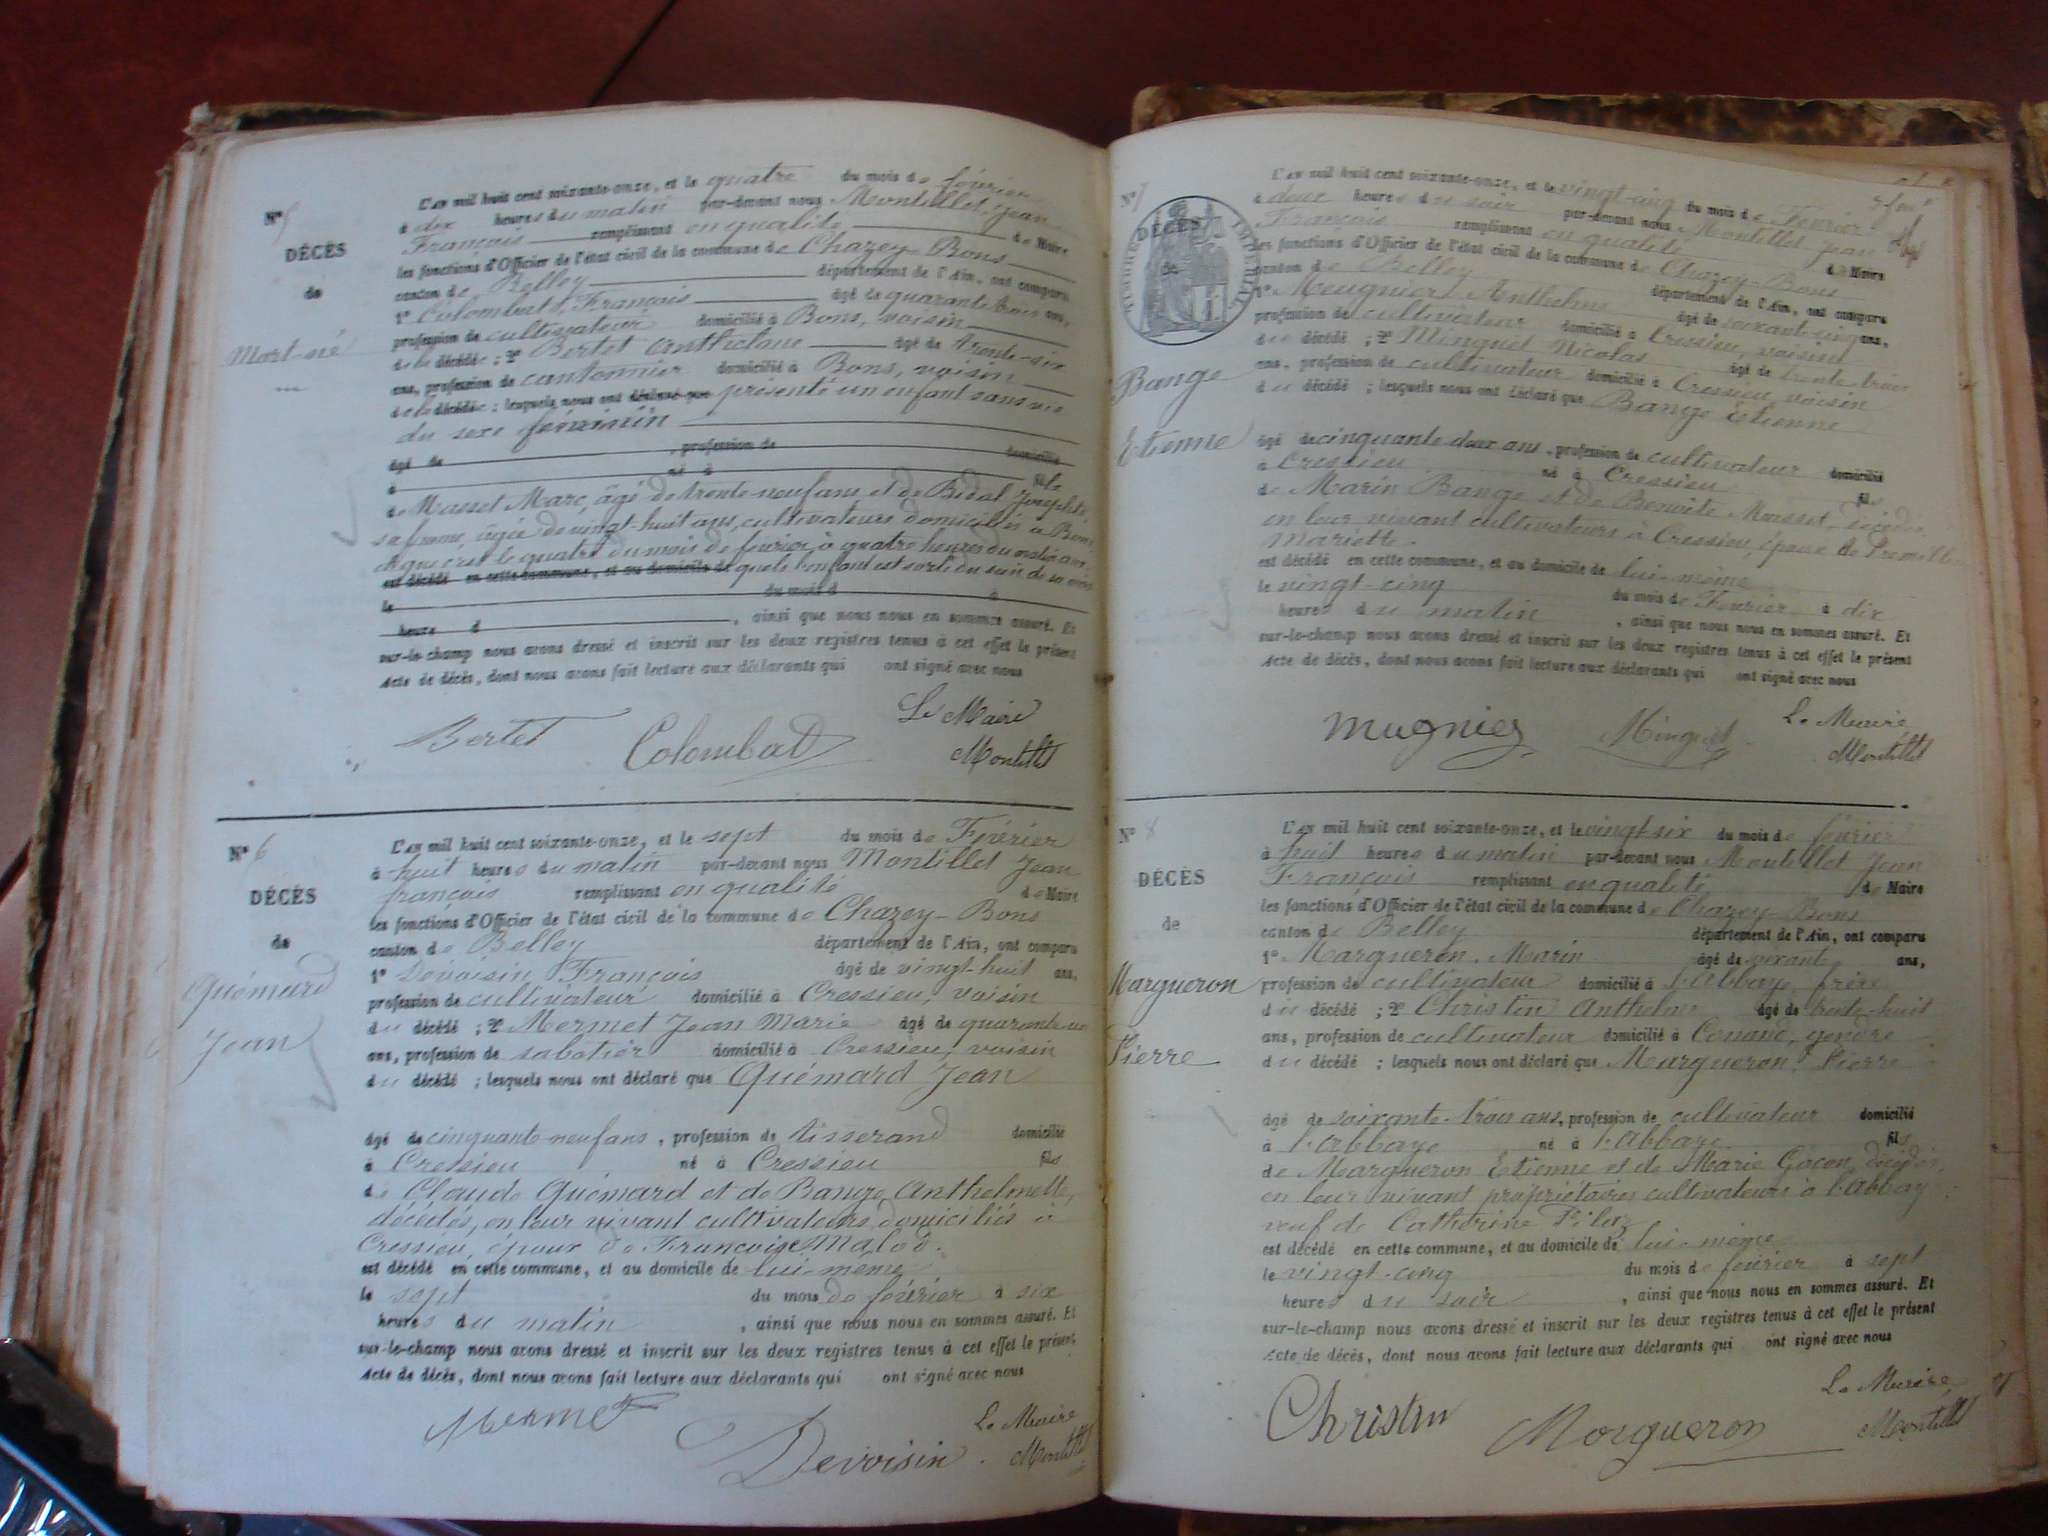 N° 5
DÉCÈS
de
Mort-né
L'an mil huit cent soixante-onze, et le quatre du mois de février
à dix heures du matin par-devant nous Montillet Jean
François remplissant en qualité de Maire
les fonctions d'Officier de l'état civil de la commune de Chazey-Bons
canton de Belley département de l'Ain, ont comparu
1° Colombet François âgé de quarante trois ans,
profession de cultivateur domicilié à Bons, voisin
de la décédée ; 2° Bertet Anthelme âgé de trente-six
ans, profession de cantonnier domicilié à Bons, voisin
de la décédée ; lesquels nous ont déclaré que présenté un enfant sans vie
du sexe féminin
âgé de , profession de domicilié
à né à fils
de Masset Marc, âgé de trente-neuf ans et de Bidal Josephte
sa femme, âgée de vingt-huit ans, cultivateurs domiciliés à Bons
et que c'est le quatre du mois de février à quatre heures du matin
est décédé en cette commune, et au domicile de que le enfant est sorti du sein de sa mère
le du mois d à
heure d , ainsi que nous nous en sommes assuré. Et
sur-le-champ nous avons dressé et inscrit sur les deux registres tenus à cet effet le présent
Acte de décès, dont nous avons fait lecture aux déclarants qui ont signé avec nous
Bertet Colombat Le Maire
Montillet
N° 6
DÉCÈS
de
Guémard
Jean
L'an mil huit cent soixante-onze, et le sept du mois de Février
à huit heures du matin par-devant nous Montillet Jean
françois remplissant en qualité de Maire
les fonctions d'Officier de l'état civil de la commune de Chazey-Bons
canton de Belley département de l'Ain, ont comparu
1° Devoisin François âgé de vingt-huit ans,
profession de cultivateur domicilié à Cressieu, voisin
du décédé ; 2° Mermet Jean Marie âgé de quarante-un
ans, profession de sabotier domicilié à Cressieu, voisin
du décédé ; lesquels nous ont déclaré que Guémard Jean
âgé de cinquante-neuf ans, profession de tisserand domicilié
à Cressieu né à Cressieu fils
de Claude Guémard et de Bange Anthelmette,
décédés, en leur vivant cultivateurs domiciliés à
Cressieu, époux de Françoise Malod.
est décédé en cette commune, et au domicile de lui-même
le sept du mois de février à six
heures du matin , ainsi que nous nous en sommes assuré. Et
sur-le-champ nous avons dressé et inscrit sur les deux registres tenus à cet effet le présent
Acte de décès, dont nous avons fait lecture aux déclarants qui ont signé avec nous
Mermet Devoisin Le Maire
Montillet
N° 7
DÉCÈS
de
TIMBRE IMPÉRIAL
Bange
Etienne
L'an mil huit cent soixante-onze, et le vingt-cinq du mois de Février
à deux heures du soir par-devant nous Montillet Jean
François remplissant en qualité de Maire
les fonctions d'Officier de l'état civil de la commune de Chazey-Bons
canton de Belley département de l'Ain, ont comparu
1° Meugnier Anthelme âgé de soixante-cinq ans,
profession de cultivateur domicilié à Cressieu, voisin
du décédé ; 2° Minguet Nicolas âgé de trente-trois
ans, profession de cultivateur domicilié à Cressieu, voisin
du décédé ; lesquels nous ont déclaré que Bange Etienne
âgé de cinquante-deux ans, profession de cultivateur domicilié
à Cressieu né à Cressieu fils
de Marin Bange et de Benoite Masset, décédés
en leur vivant cultivateurs à Cressieu, époux de
Mariette.
est décédé en cette commune, et au domicile de lui-même
le vingt-cinq du mois de Février à dix
heures du matin , ainsi que nous nous en sommes assuré. Et
sur-le-champ nous avons dressé et inscrit sur les deux registres tenus à cet effet le présent
Acte de décès, dont nous avons fait lecture aux déclarants qui ont signé avec nous
Mugnier Minguet Le Maire
Montillet
N° 8
DÉCÈS
de
Margueron
Pierre
L'an mil huit cent soixante-onze, et le vingt-six du mois de février
à huit heures du matin par-devant nous Montillet Jean
François remplissant en qualité de Maire
les fonctions d'Officier de l'état civil de la commune de Chazey-Bons
canton de Belley département de l'Ain, ont comparu
1° Margueron Marin âgé de soixante ans,
profession de cultivateur domicilié à l'abbaye, frère
du décédé ; 2° Christin Anthelme âgé de trente-huit
ans, profession de cultivateur domicilié à gendre
du décédé ; lesquels nous ont déclaré que Margueron Pierre
âgé de soixante-trois ans, profession de cultivateur domicilié
à l'Abbaye né à l'Abbaye fils
de Margueron Etienne et de Marie décédés,
en leur vivant propriétaires cultivateurs à l'Abbaye
veuf de Catherine
est décédé en cette commune, et au domicile de lui-même
le vingt-cinq du mois de février à sept
heures du soir , ainsi que nous nous en sommes assuré. Et
sur-le-champ nous avons dressé et inscrit sur les deux registres tenus à cet effet le présent
Acte de décès, dont nous avons fait lecture aux déclarants qui ont signé avec nous
Christin Morgueron Le Maire
Montillet